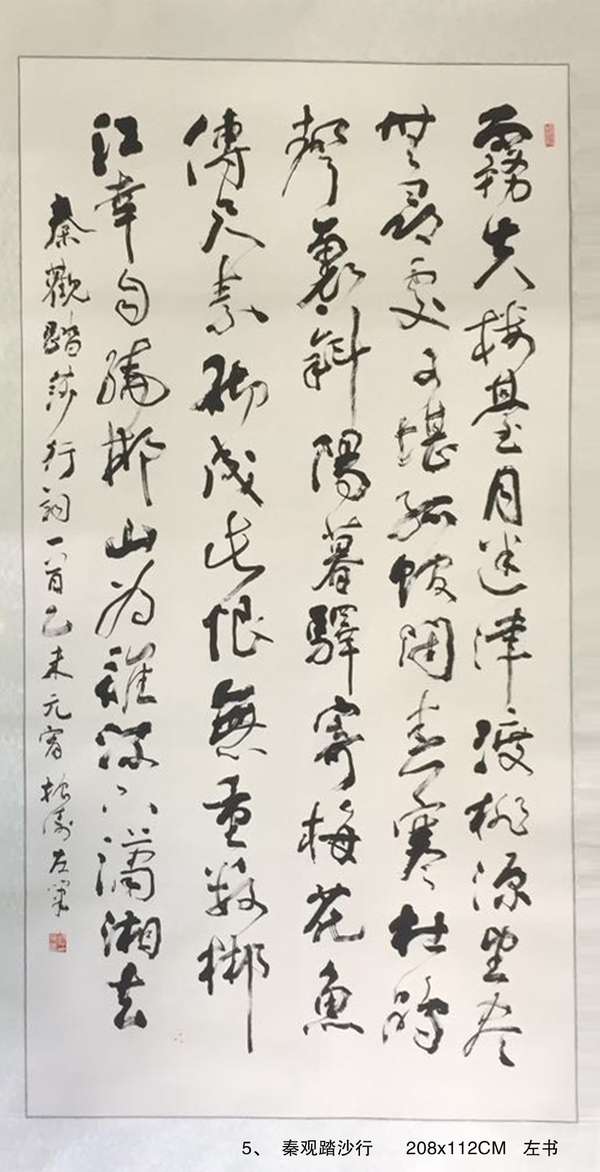 霧失楼臺月迷津渡桃源望尽
無尋處可堪孤館閉春寒杜鹃
聲裏斜陽暮驛寄梅花魚
傳尺素砌成此恨無重数郴
江幸自繞郴山為誰流下瀟湘去
秦觀踏莎行詞一首乙未元宵松濤左筆
5、 秦观踏沙行 208x112CM 左书